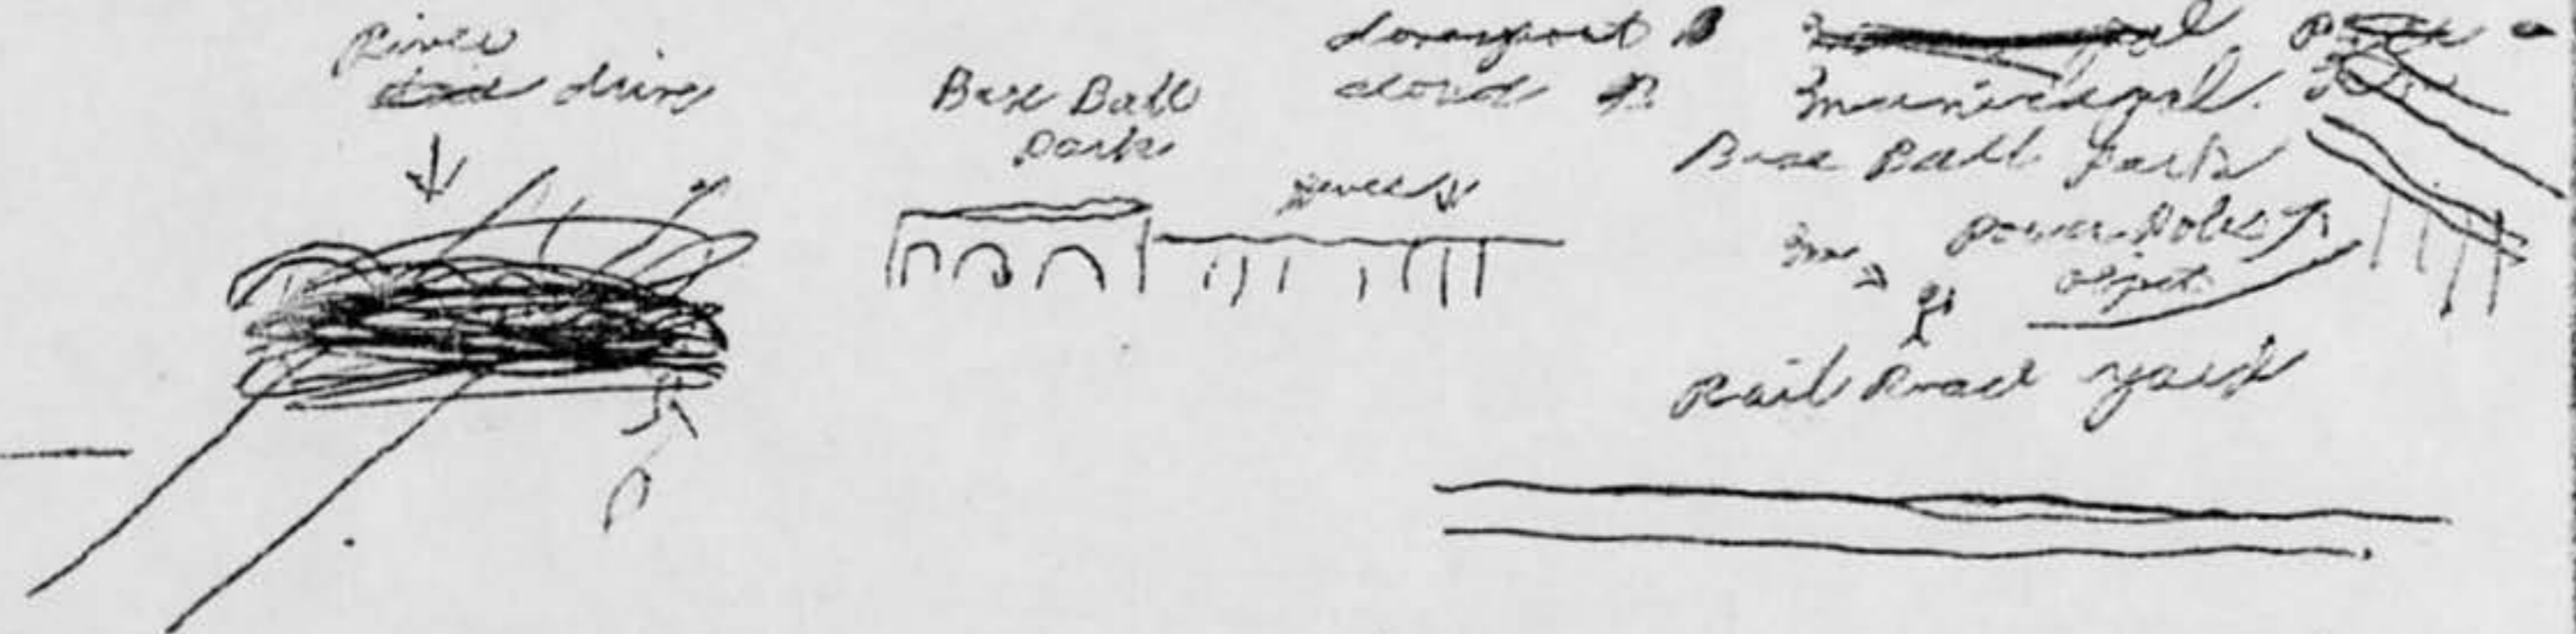 River
drive
Base Ball
Park
davenport
cloud
Municipal
Base Ball Park
Power Poles
me
object
Rail Road yard